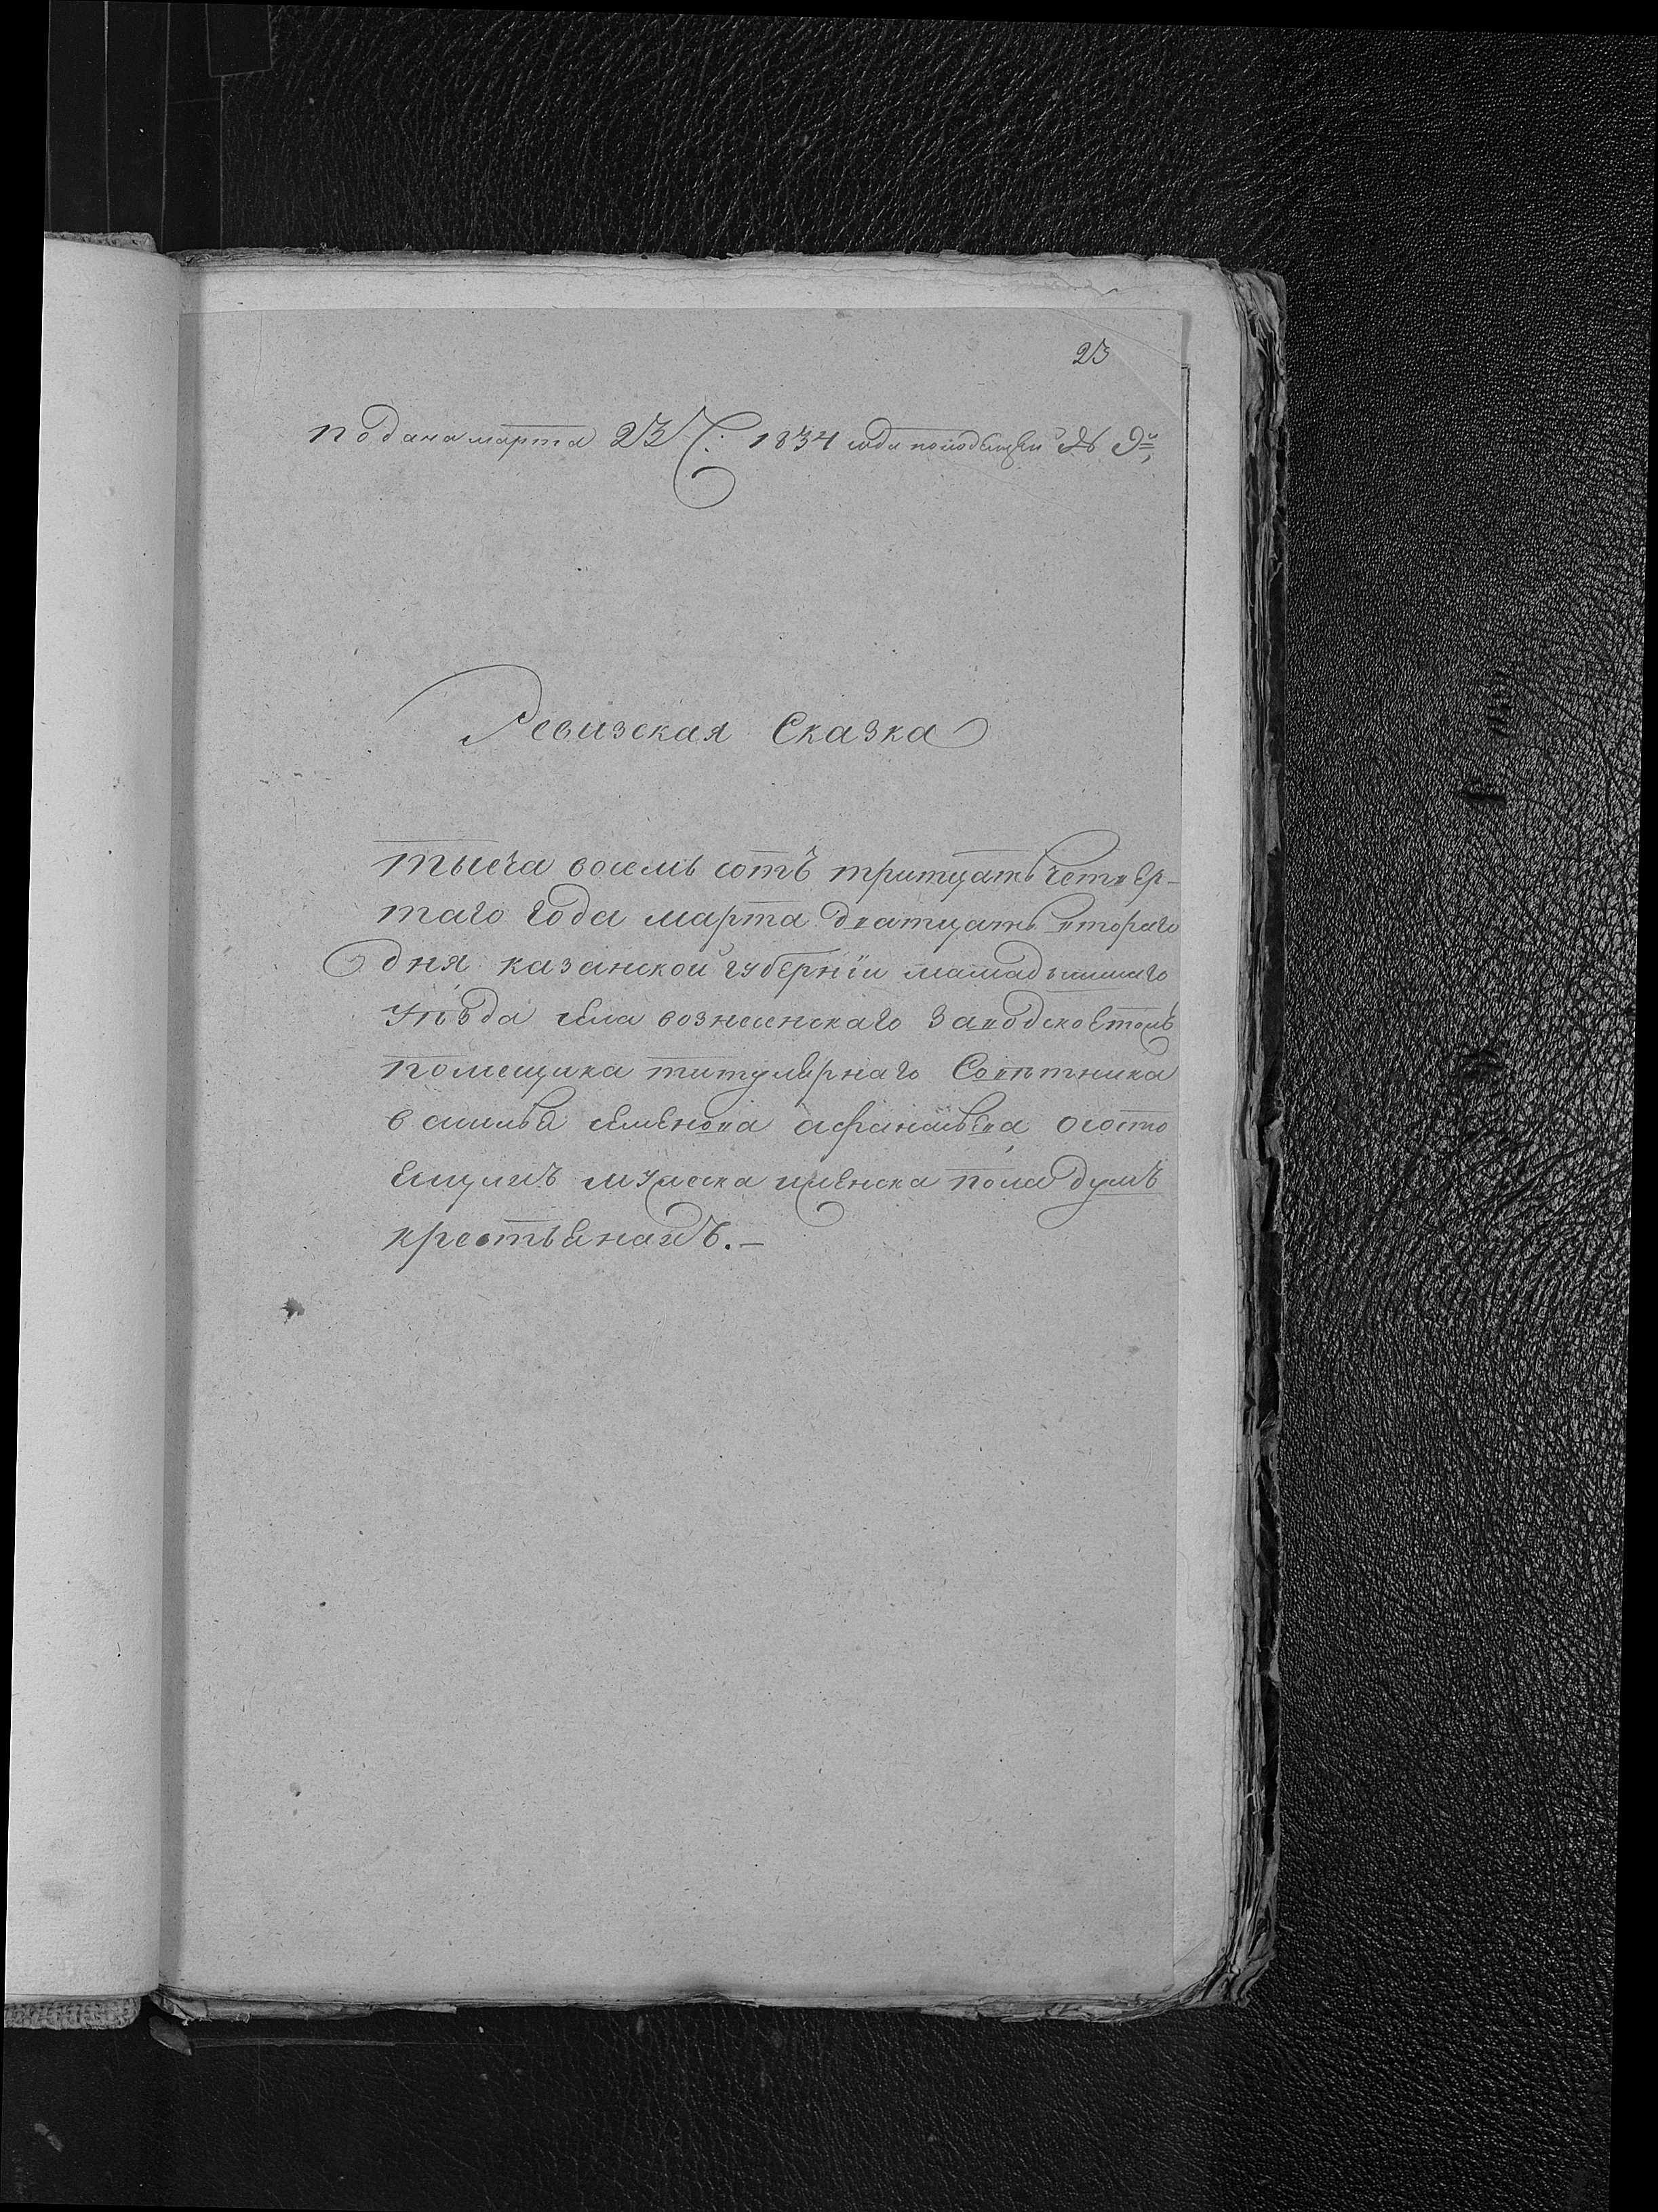 23
подана марта 23 ч. 1834 года № 9й,
Ревизская Сказка
тысеча восемь сотъ тритцать четвер-
таго года марта дватцать втораго
дня казанской губернїи мамадышшаго
уѣзда села вознесенскаго
помещика титулярнаго Совѣтника
василья семенова афанасьева ососто
ещихъ мужеска иженска пола душъ
крестьянахъ.—